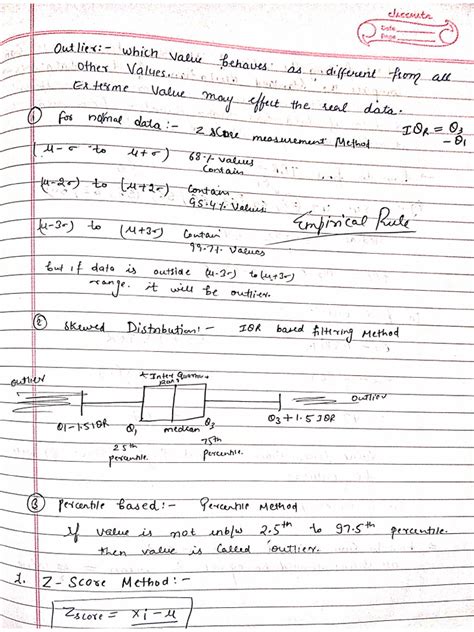 classmate
Date
Page
Outlier:- which value behaves as different from all
other values.
Exterme value may effect the real data.
① for normal data:- Z score measurement Method
IQR = Q3 - Q1
(μ-σ to μ+σ) 68% values
Contain
(μ-2σ) to (μ+2σ) Contain
95.4% values
Empirical Rule
(μ-3σ) to (μ+3σ) Contain
99.7% values
but if data is outside (μ-3σ) to (μ+3σ)
range. it will be outlier.
② Skewed Distribution:- IQR based filtering Method
outlier
Outlier
Q1-1.5IQR
Q1
median
Q3
Q3+1.5IQR
25th
percentile.
75th
Percentile.
③ percentile based:- Percentile Method
If value is not inb/w 2.5th to 97.5th percentile.
then value is called outlier.
2. Z-Score Method:-
Zscore = xi-μ